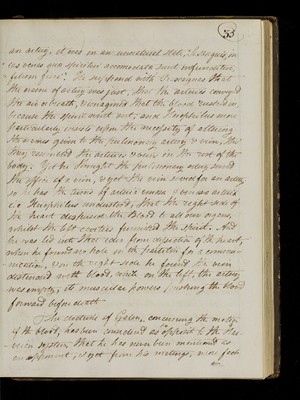 33
an artery, it was in an unnatural state, "si sanguis, in
eas venas quae spiritui accomodatae sunt infunditur,
He supposed with Praxagoras that
the name of artery was just, that the arteries conveyed
the air or breath, & imagined that the blood rushed in,
because the spirit went out; and Herophilus more
particularly insists upon the necessity of altering
the names given to the pulmonary artery & vein, tho'
they resembled the arteries & veins, in the rest of the
body; Yet he thought the pulmonary artery had
the office of a vein, & that the vein served for an artery
Herophilus understood, that the right side of
the heart dispensed the Blood to all our organs,
whilst the left cavities furnished the Spirit. And
he was led into this idea from dissection of the heart,
when he found no hole in the partition for a commu-
nication, upon the right side he found the vein
distended with blood, while on the left, the artery
was empty, its muscular powers pushing the blood
forward before death
The certitude of Galen, concerning the motion
of the blood, has been considered as opposed to the Har-
veian system, that he has never been mentioned as
an opponent, & yet from his writings, more facts